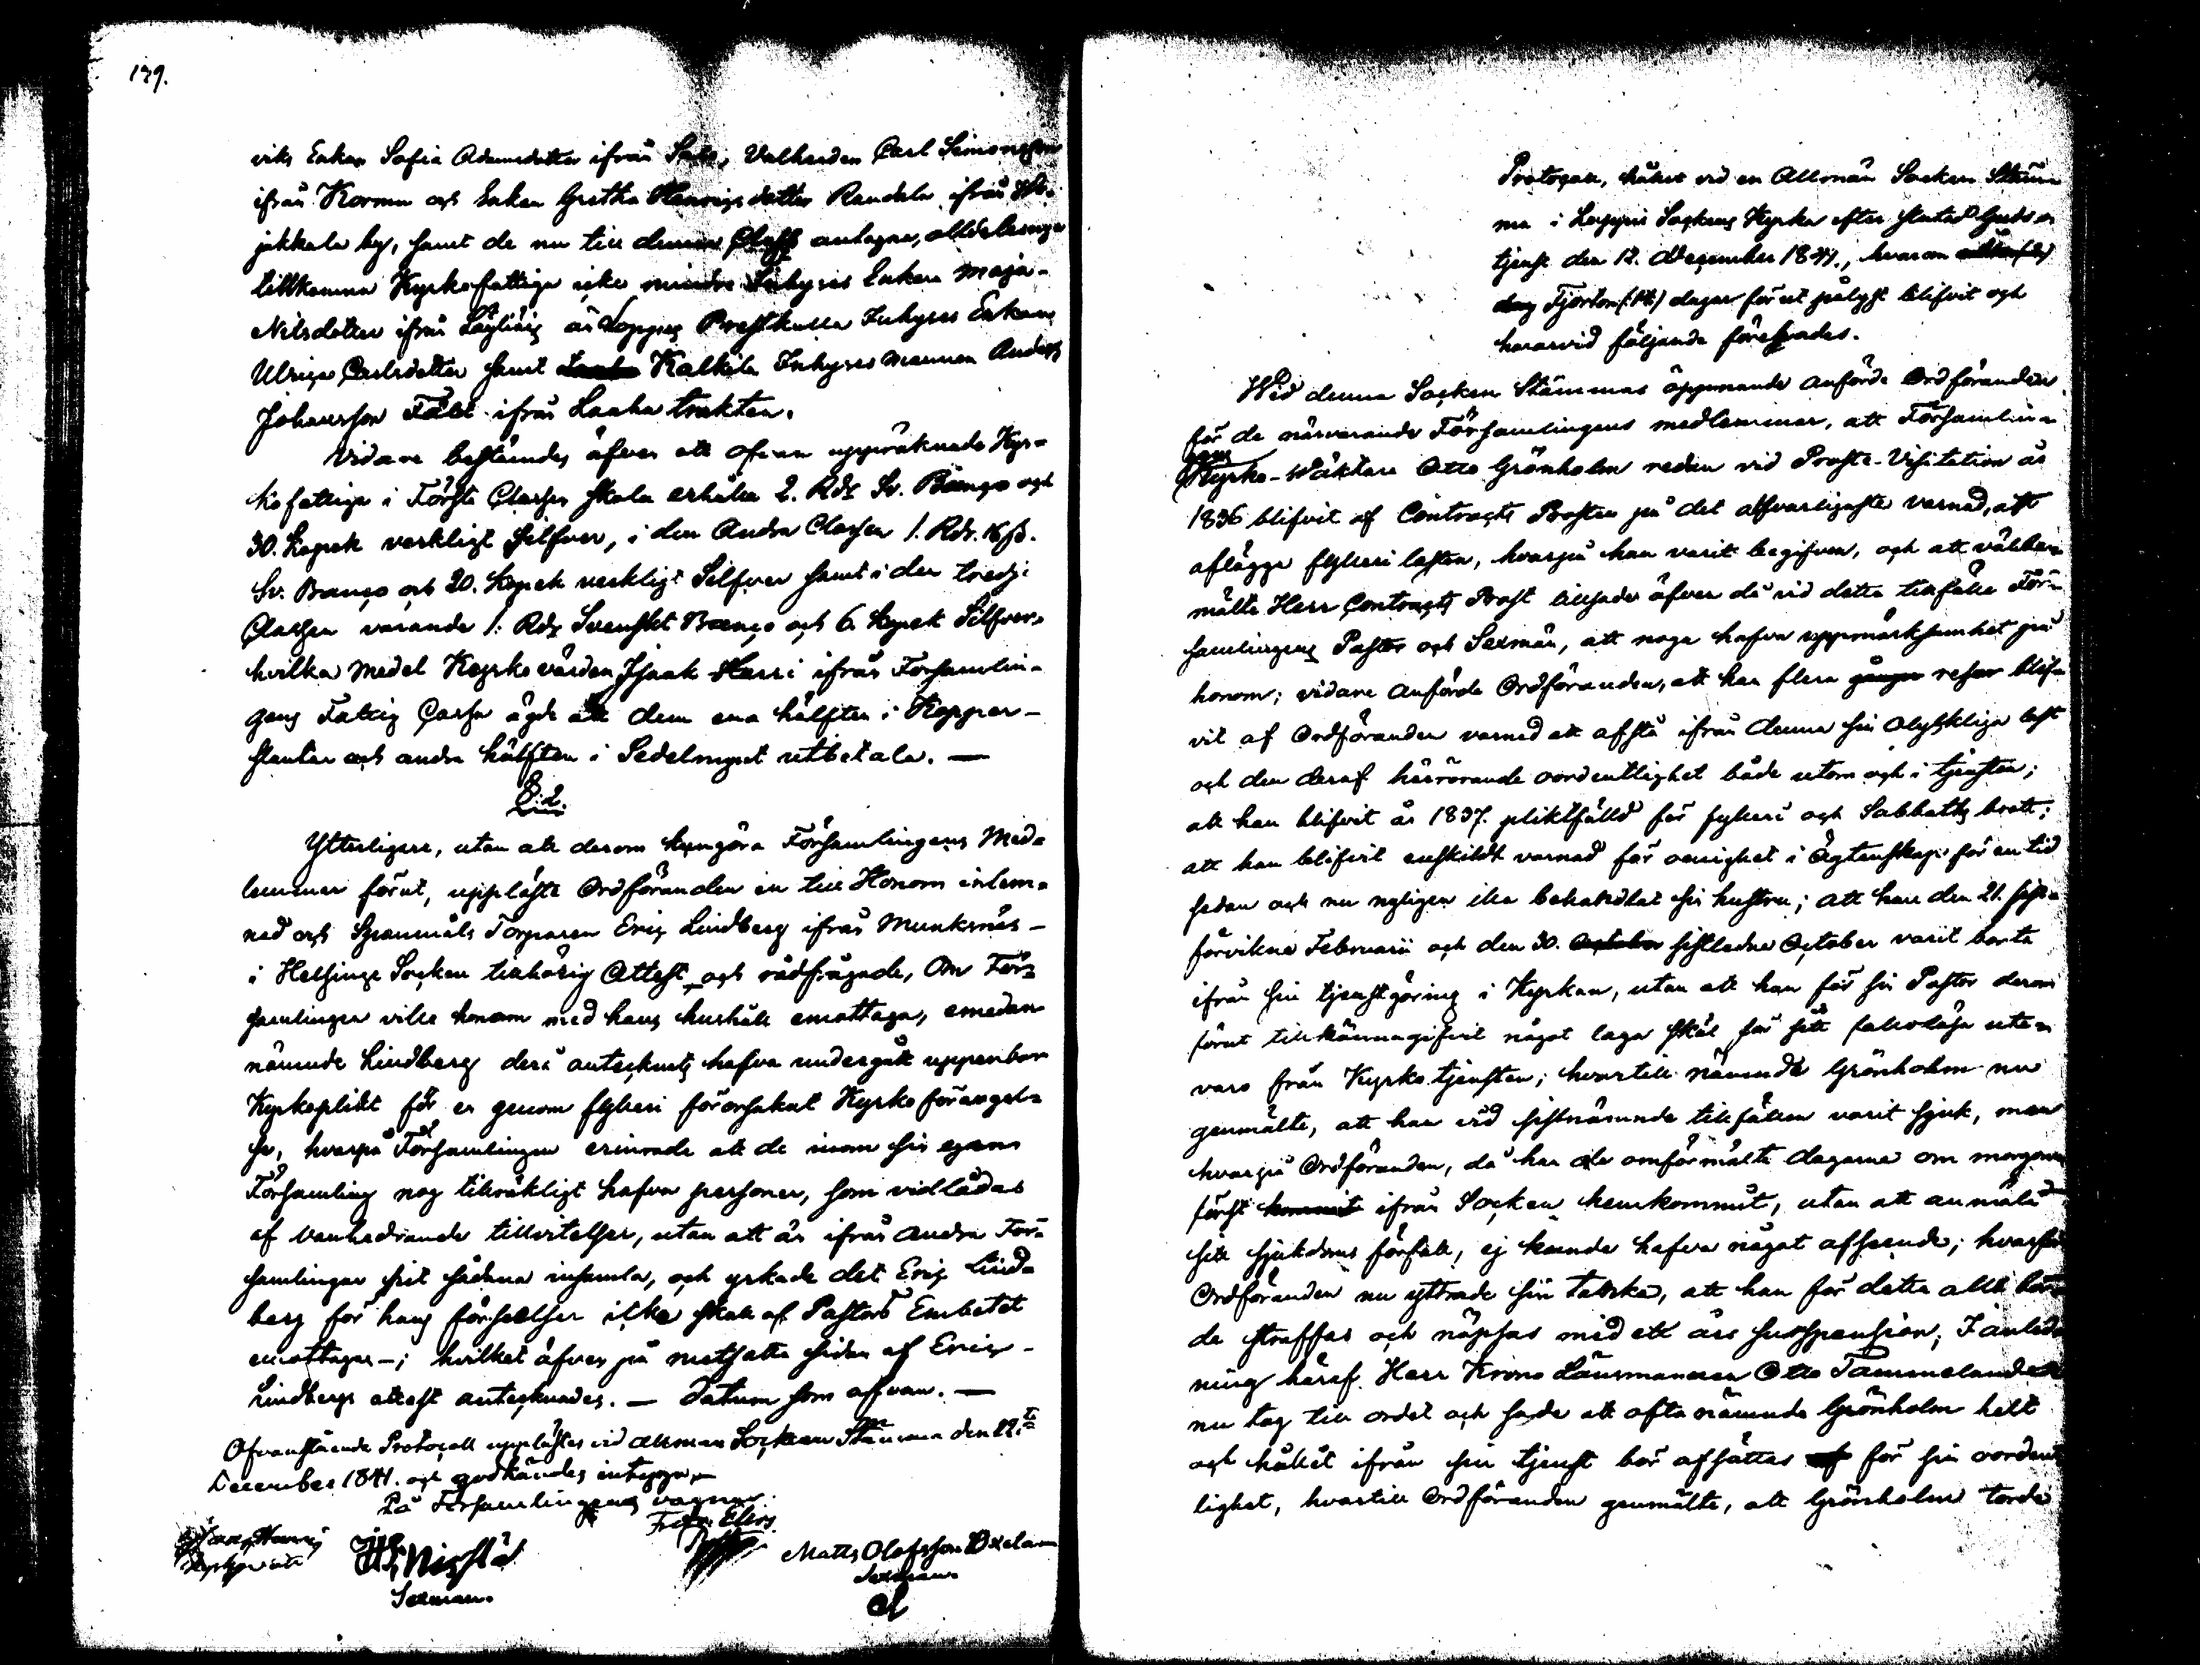 139.
vik, Enkan Sofia Adamsdotter ifrån Salo, Valkarden Carl Simonsson
ifrån Kormu och Enkan Gretha Henricsdotter Randela ifrån
jakkala by, samt de nu till denna Class antagne, alldeles nya
tillkomna Kyrkofattiga icke mindre Inhyses Enkan Maja
Nilsdotter ifrån Läyliäis än Loppis Prestkulla Inhyses Enkan
Ulrica Carlsdotter samt Kalkela Inhyses mannen Anders
Johansson Fält ifrån Laaka trakten.
Vidare bestämdes äfven att ofvan uppräknade Kyr-
kofattiga i Första Classen skola erhålla 2. Rdr Sv. Banco och
30. Kopek verkligt Silfver, i den Andra Classen 1. Rdr. 16 ß.
Sv. Banco och 20. Kopek verkligt Silfver samt i den tredje
Classen varande 1. Rdr Svenskt Banco och 6. Kopek Silfver,
hvilka medel Kyrkovärden Isaak Harri ifrån Församlin-
gens Fattig Cassa ägde att dem ena hälften i Koppar-
slantar och andra hälften i Sedelmynt utbetala. —
§. 2.
Ytterligare, utan att derom kungöra Församlingens Med-
lemmar förut, uppläste Ordföranden en till Honom inlem-
nad och Spanmåls Torparen Eric Lindberg ifrån Munksnäs
i Helsinge Socken tillhörig Attest och rådfrågade, Om För-
samlingen ville honom med hans hushåll emottaga, emedan
nämnde Lindberg deri antecknats hafva undergått uppenbar
Kyrkoplikt för en genom fylleri förorsakat Kyrko förargel-
se, hvarpå Församlingen erinrade att de inom sin egen
Församling nog tillräkligt hafva personer, som vidlådas
af vanhedrande tillvitelser, utan att än ifrån andra För-
samlingar hit sådana insamla, och yrkade det Eric Lind-
berg för hans förseelser icke skall af Pastors Embetet
emottagas —; hvilket äfven på motsatta sidan af Eric
Lindbergs attest antecknades. — Datum som offvan. —
Ofvanstående Protocoll upplästes vid allmän Socken Stämma den 22.
December 1841. och godkändes intyga
På Församlingens vagnar.
Isaac Harri
Kyrkovärd
Sexman.
Matts Olofsson Oxelam
Sexman
Protocoll, hållet vid en Allmän Socken Stäm-
ma i Loppis Sockens Kyrka efter slutad Guds-
tjenst den 12. December 1841., hvarom
Fjorton (14) dagar förut pålyst blifvit och
hvarvid följande förehades.
Wid denna Socken Stämmas öppnande anförde Ordföranden
för de närvarande Församlingens medlemmar, att Församlin-
gens
Kyrko-Wäktare Otto Grönholm redan vid Prosts-Visitation år
1836 blifvit af Contracts Prosten på det alfvarligaste varnad, att
aflägga fylleri lasten, hvarpå han varit begifven, och att välbe-
mälte Herr Contracts Prost tillsade äfven då vid detta tillfälle För-
samlingens Pastor och Sexmän, att noga hafva uppmärksamhet på
honom; vidare anförde Ordföranden, att han flera gånger resor blif-
vit af Ordföranden varnad att afstå ifrån denna sin olyckliga last
och den deraf härrörande oordentlighet både utom och i tjensten;
att han blifvit år 1837. pliktfälld för fylleri och Sabbaths brott;
att han blifvit enskildt varnad för oenighet i Ägtenskap för en tid
sedan och nu nyligen illa behandlat sin hustru; att han den 21. sist-
förvikna Februarii och den 30. October sistledne October varit borta
ifrån sin tjenstgöring i Kyrkan, utan att han för sin Pastor derom
förut tillkännagifvit något laga skäl för sitt ute-
varo från Kyrkotjensten; hvartill nämnde Grönholm nu
genmälte, att han vid sistnämnde tillfällen varit sjuk, men
hvarpå Ordföranden, då han de omförmälte dagarna om morgonen
först kommit ifrån Socken hemkommit, utan att anmäla
sitt sjukdoms förfall, ej kunde hafva något afseende; hvarföre
Ordföranden nu yttrade sin tanka, att han för detta allt bör-
de straffas och näpsas med ett års suspension; I anled-
ning häraf Herr Krono Länsmannen Otto Tammelander
nu tog till ordet och sade att ofta nämnde Grönholm helt
och hållet ifrån sin tjenst bör afsättas för sin oordent-
lighet, hvartill Ordföranden genmälte, att Grönholm torde